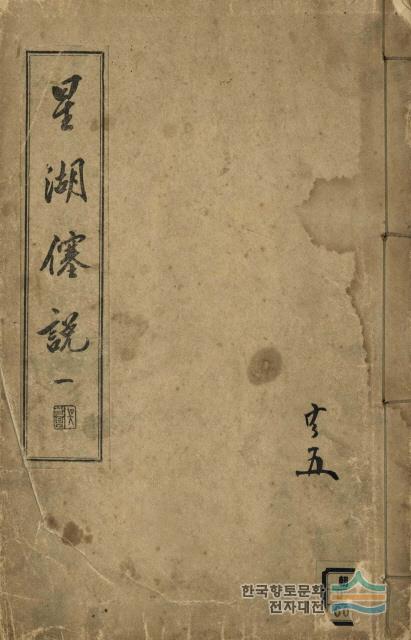 星湖僿說
一
共五
한국향토문화
전자대전